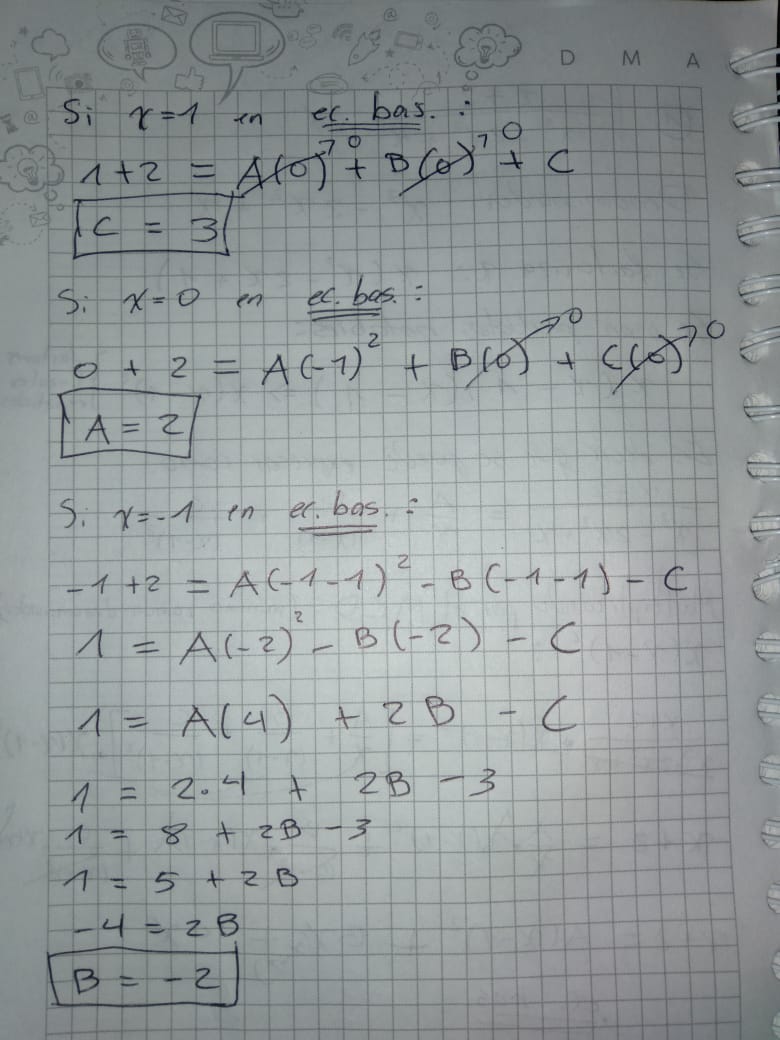 D M A
Si x=1 en ec. bas. :
1+2 = A(0)→0 + B(0)→0 + C
C = 3
Si x=0 en ec. bas. :
0 + 2 = A(-1)² + B(0)→0 + C(0)→0
A = 2
Si x=-1 en ec. bas. :
-1+2 = A(-1-1)² - B(-1-1) - C
1 = A(-2)² - B(-2) - C
1 = A(4) + 2B - C
1 = 2·4 + 2B - 3
1 = 8 + 2B - 3
1 = 5 + 2B
-4 = 2B
B = -2